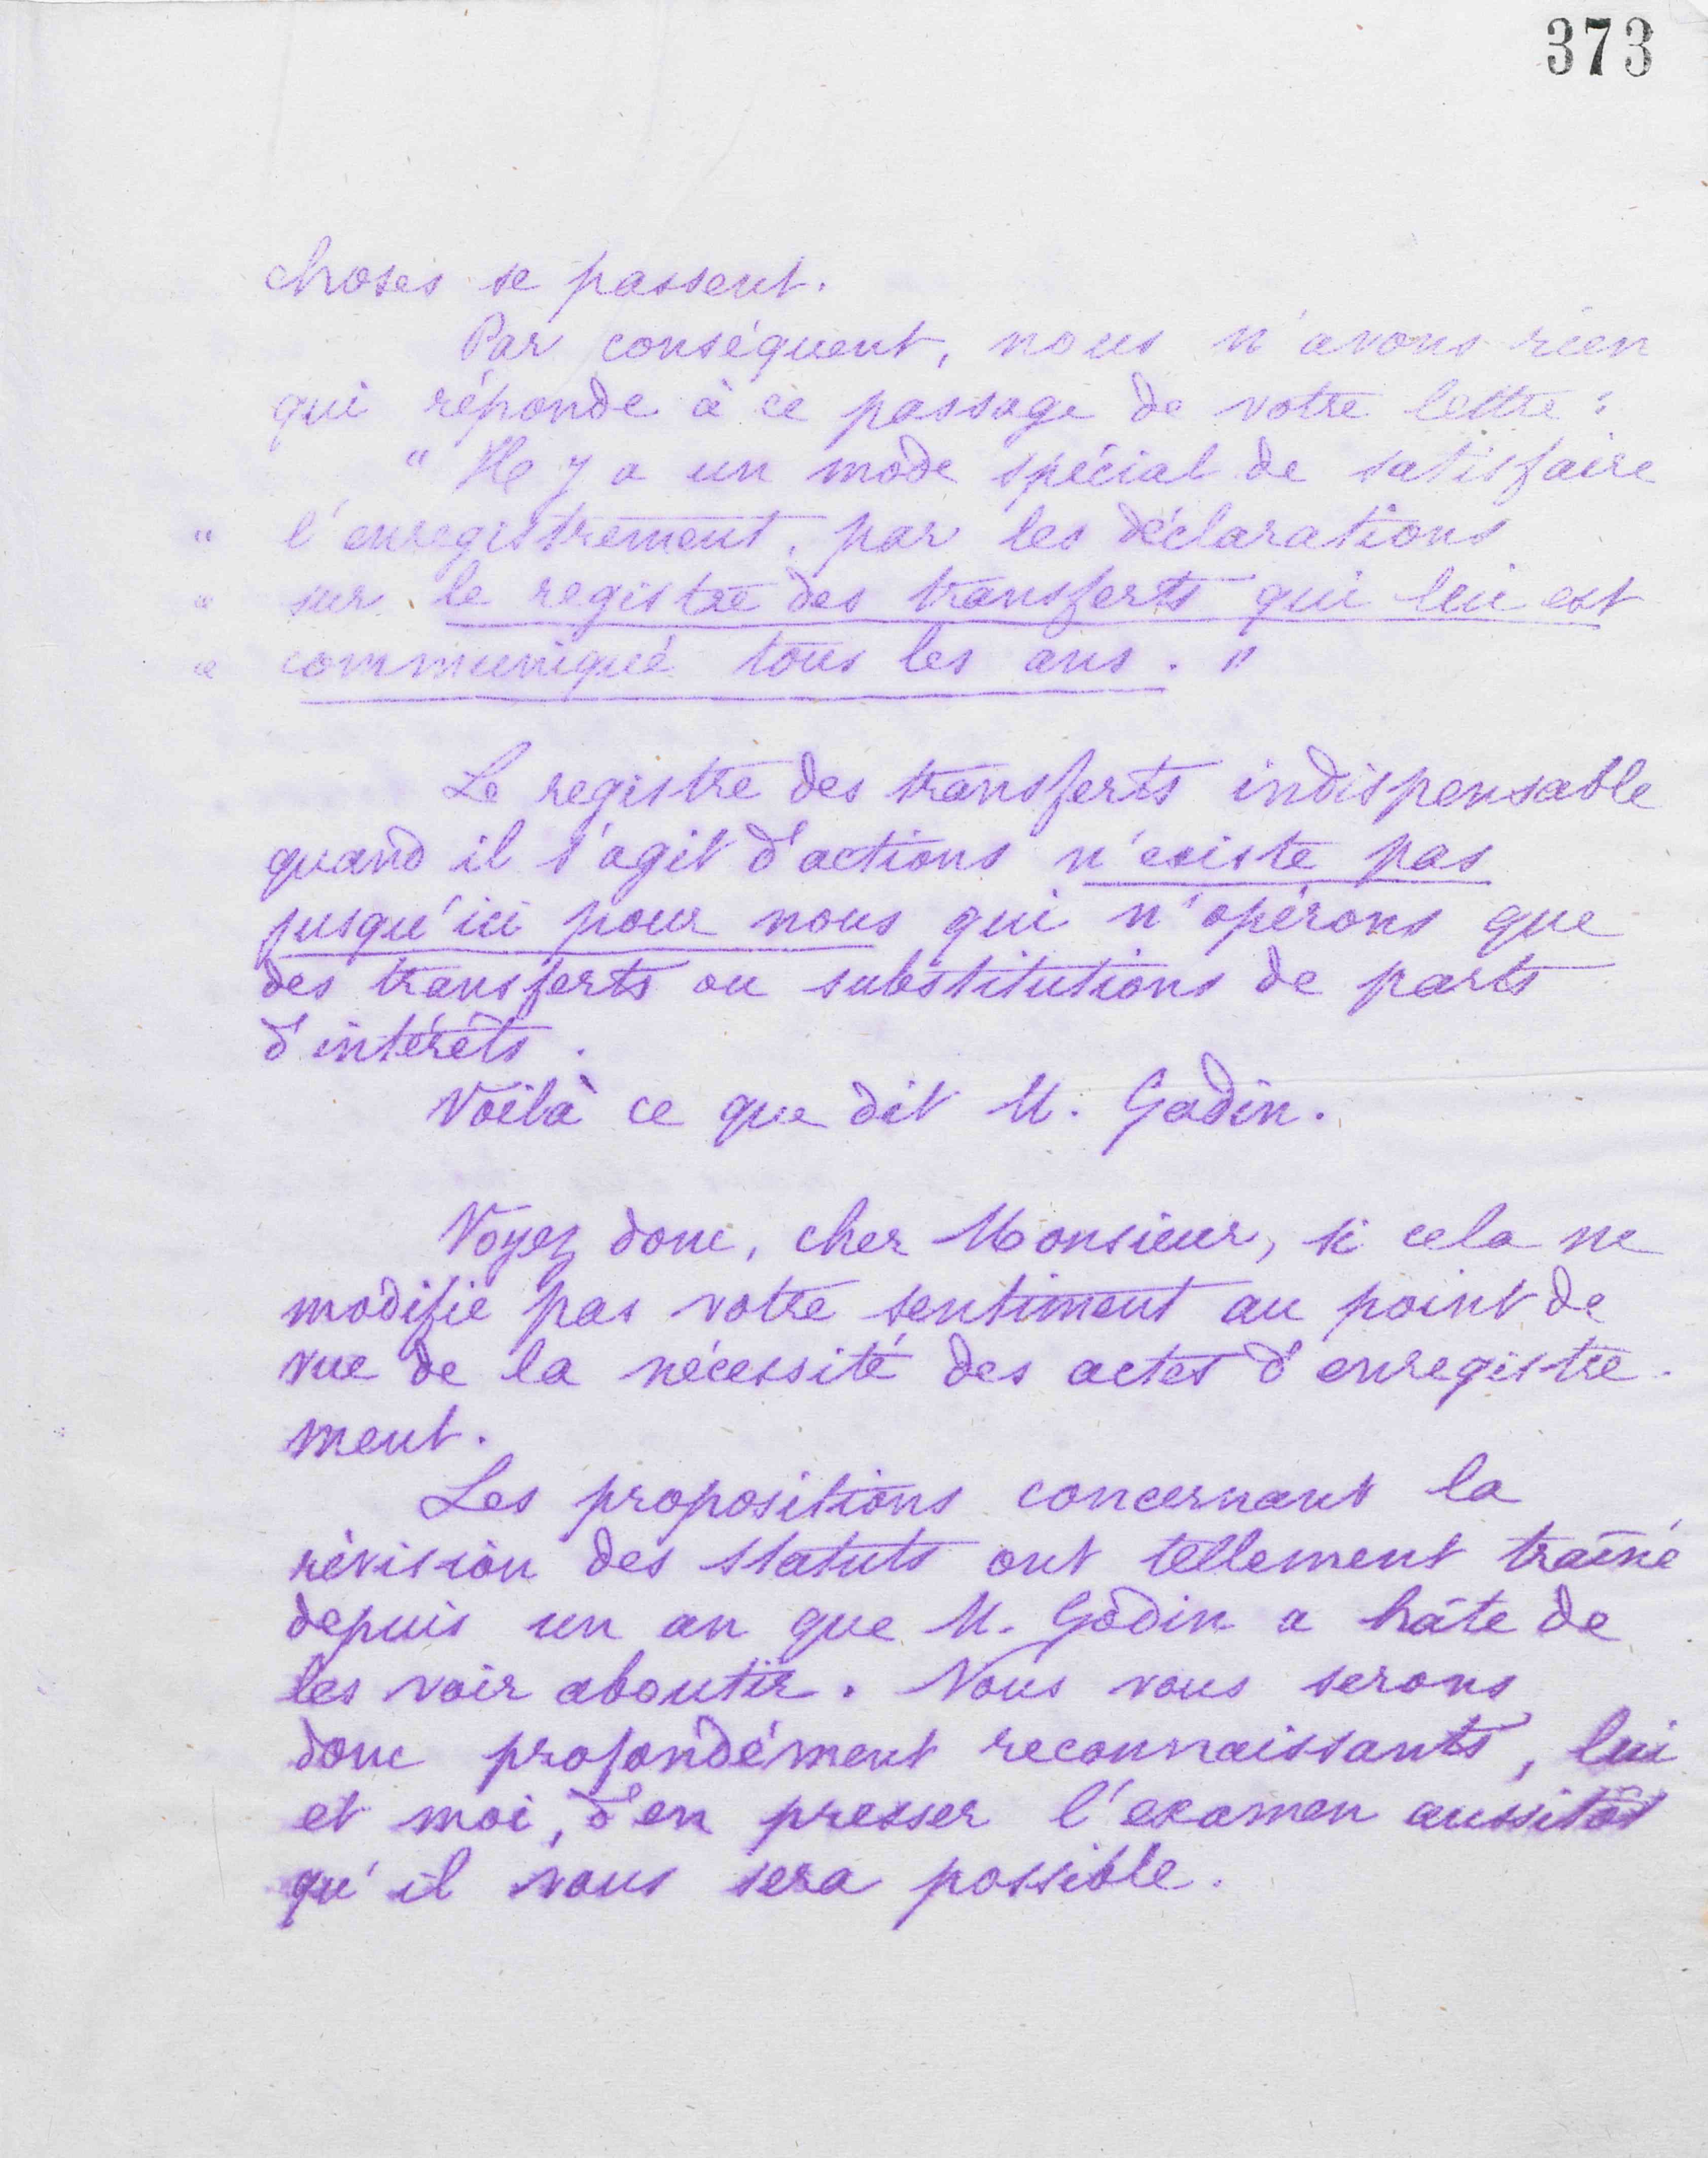 373
choses se passent.
Par conséquent, nous n'avons rien
qui réponde à ce passage de votre lettre :
" Il y a un mode spécial de satisfaire
" l'enregistrement, par les déclarations
" sur le registre des transferts qui lui est
" communiqué tous les ans. "
Le registre des transferts indispensable
quand il s'agit d'actions n'existe pas
jusqu'ici pour nous qui n'opérons que
des transferts ou substitutions de parts
d'intérêts.
Voilà ce que dit M. Godin.
Voyez donc, cher Monsieur, si cela ne
modifie pas votre sentiment au point de
vue de la nécessité des actes d'enregistre-
ment.
Les propositions concernant la
révision des statuts ont tellement traîné
depuis un an que M. Godin a hâte de
les voir aboutir. Nous vous serons
donc profondément reconnaissants, lui
et moi, d'en presser l'examen aussitôt
qu'il vous sera possible.